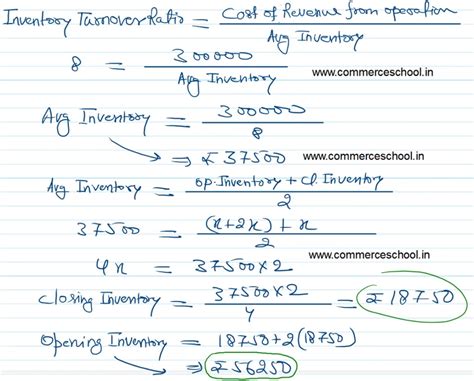 Inventory Turnover Ratio = Cost of Revenue from operation / Avg Inventory
8 = 300000 / Avg Inventory
www.commerceschool.in
Avg Inventory = 300000 / 8
⇒ ₹37500
www.commerceschool.in
Avg Inventory = Op. Inventory + Cl. Inventory / 2
37500 = (x+2x) + x / 2
www.commerceschool.in
4x = 37500×2
Closing Inventory = 37500×2 / 4 = ₹18750
Opening Inventory = 18750+2(18750)
⇒ ₹56250